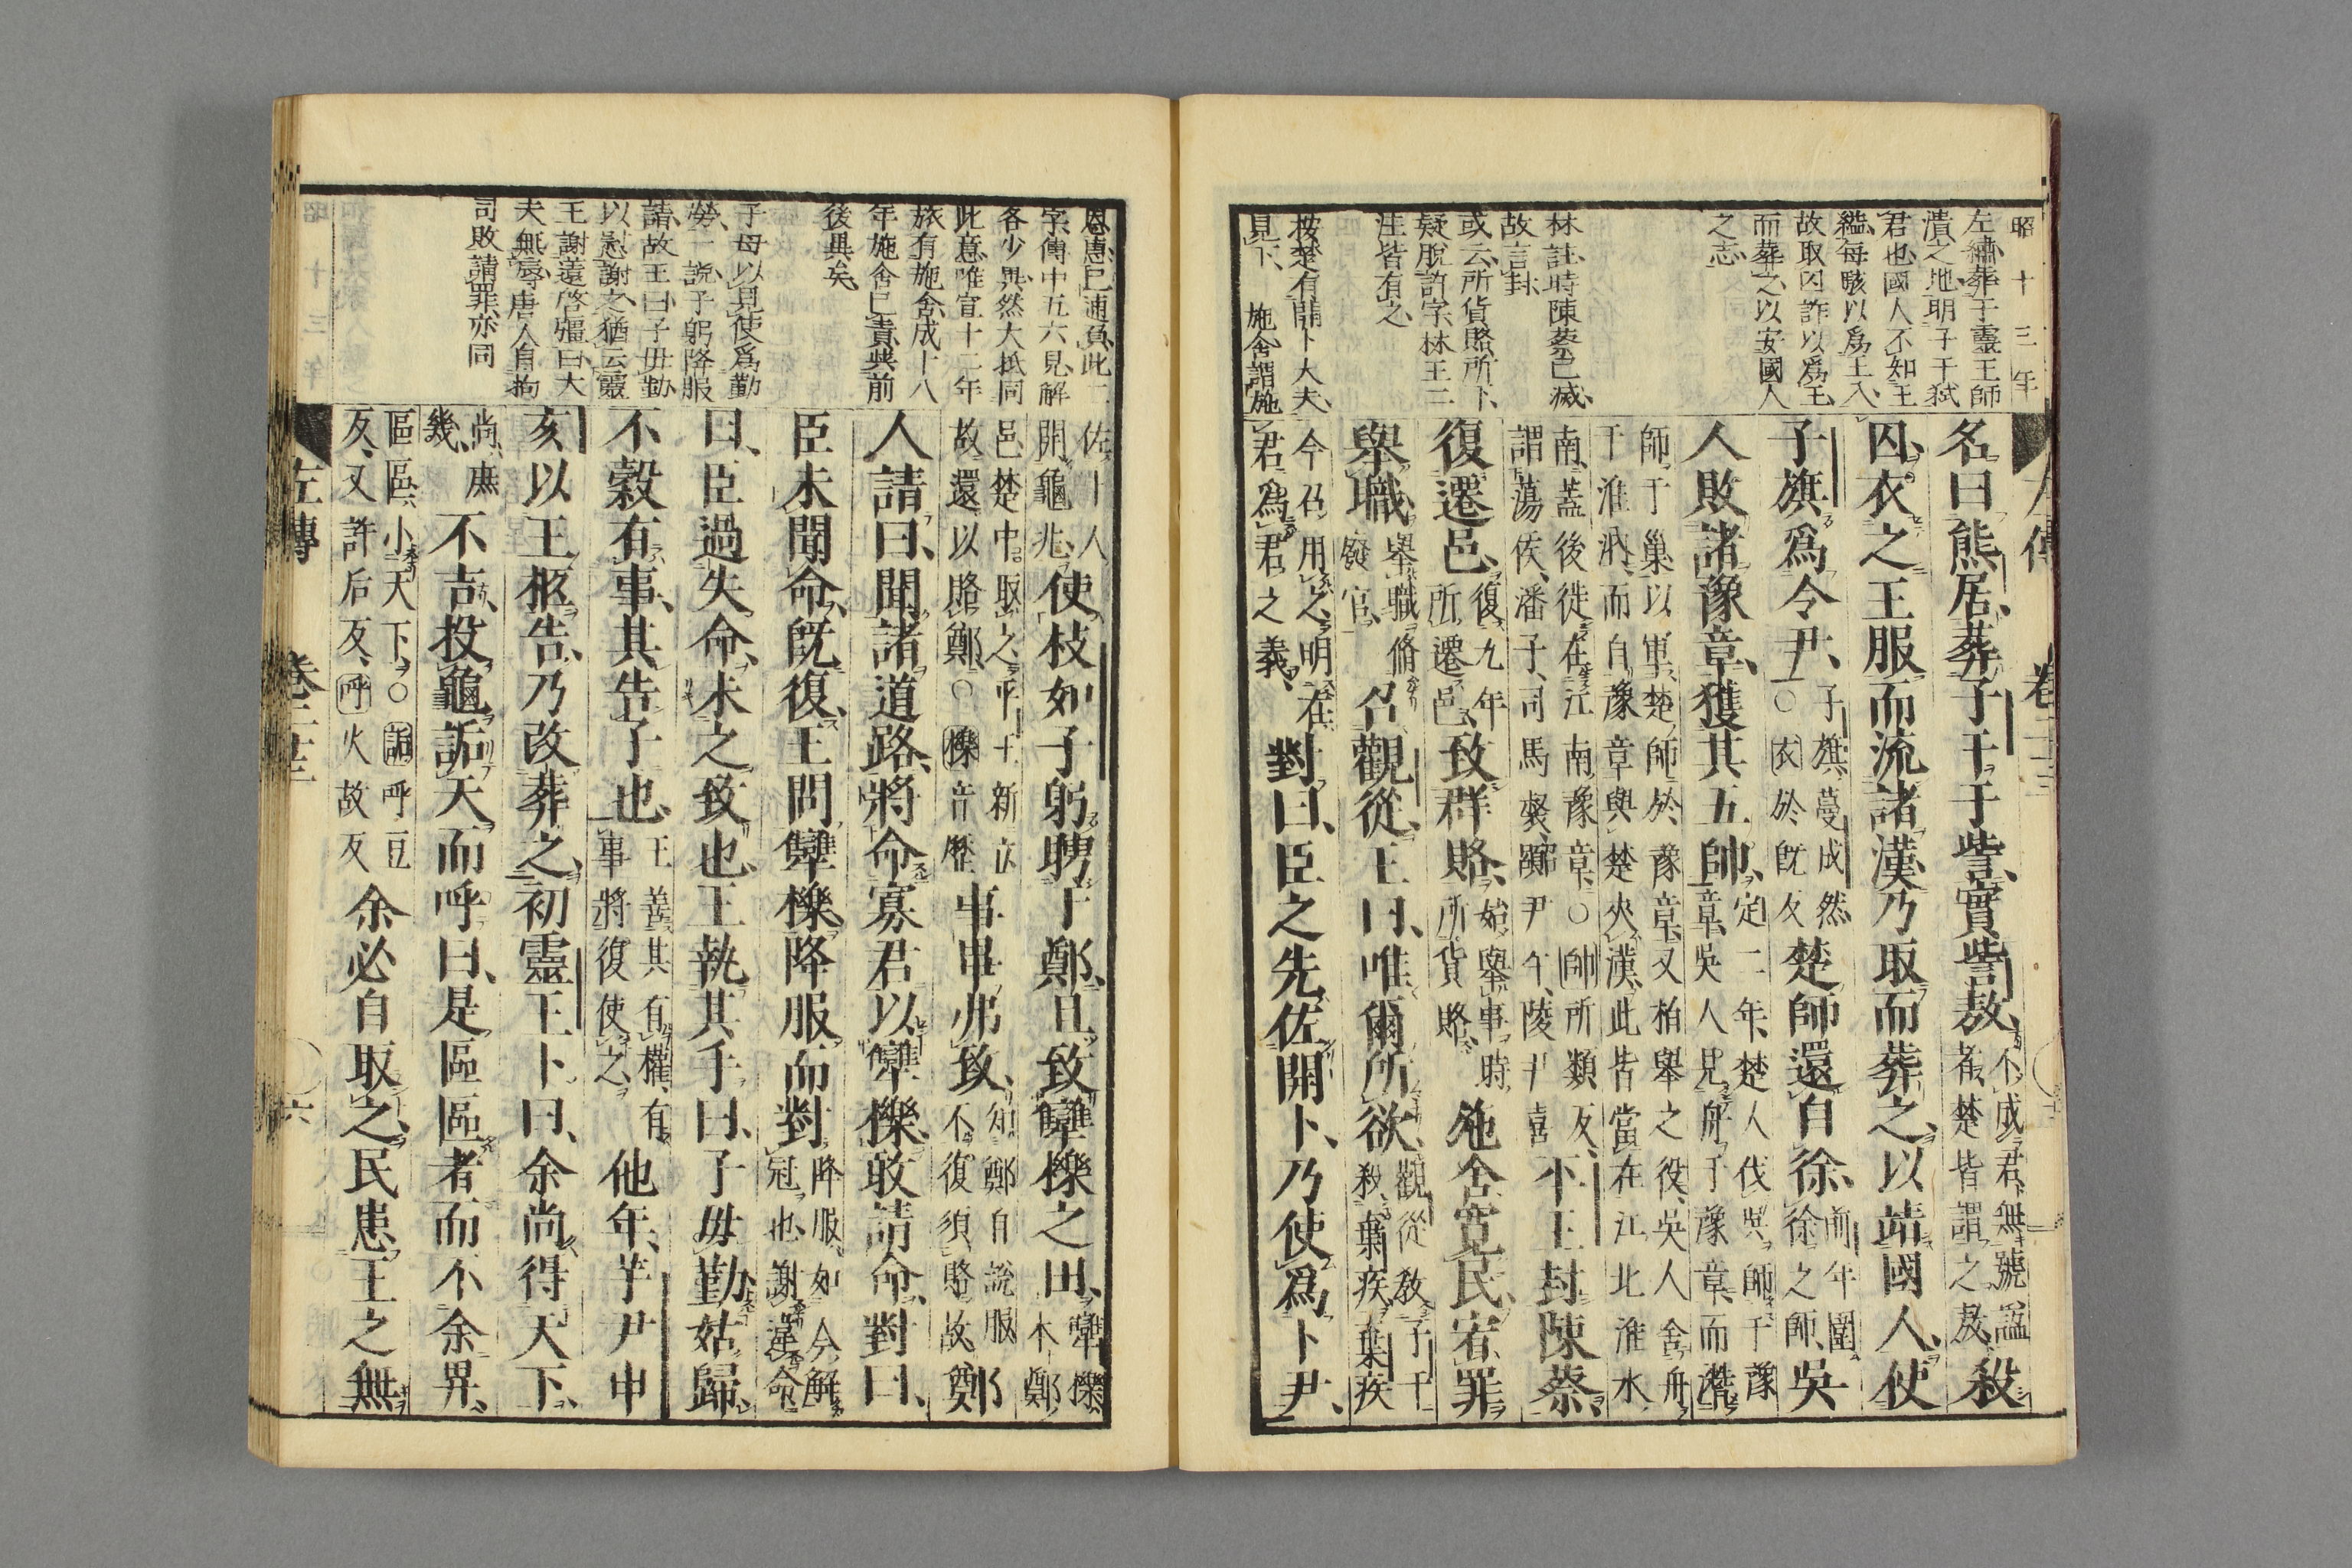 昭十三年
左繡葬子靈王師
潰之地明子干弑
君也國人不知王
縊每駭以爲王入
故取囚詐以爲王
而葬之以安國人
之志
林註時陳蔡已滅
故言封
或云所貨賂所下
疑脫許字林王三
注皆有之
按楚有開卜大夫
見下　施舍謂施
左傳　卷二十三
名曰熊居葬子干于訾實訾敖不成君無號謚者楚皆謂之敖殺
囚衣之王服而流諸漢乃取而葬之以靖國人使
子旗爲令尹子旗蔓成然○衣於既反楚師還自徐前年圍徐之師吳
人敗諸豫章獲其五帥定二年楚人伐吳師于豫章吳人見舟于豫章而潛
師于巢以軍楚師於豫章又柏舉之役吳人舍舟于淮汭而自豫章與楚夾漢此皆當在江北淮水
南蓋後徙在江南豫章○帥所類反謂蕩侯潘子司馬督囂尹午陵尹喜平王封陳蔡
復遷邑復九年所遷邑致群賂始舉事時所貨賂施舍寬民宥罪
舉職舉職脩廢官召觀從王曰唯爾所欲觀從教子干殺棄疾棄疾
今召用之明在君爲君之義對曰臣之先佐開卜乃使爲卜尹
恩惠已逋負此二
字傳中五六見解
各少異然大抵同
此意唯宣十二年
旅有施舍成十八
年施舍已責與前
後異矣
子母以見使爲勤
勞一說子躬降服
請故王曰子毋勤
以慰謝之猶云靈
王謝薳啓彊曰大
夫無辱唐人自拘
司敗請罪亦同
佐卜人開龜兆使枝如子躬聘于鄭且致犨櫟之田犨櫟本鄭
邑楚中取之平王新立故還以賂鄭○櫟音歷事畢弗致知鄭自說服不復須賂故鄭
人請曰聞諸道路將命寡君以犨櫟敢請命對曰
臣未聞命既復王問犨櫟降服而對降服如今解冠也謝違命
曰臣過失命未之致也王執其手曰子毋勤姑歸
不穀有事其告子也王善其有權有事將復使之他年芋尹申
亥以王柩告乃改葬之初靈王卜曰余尚得天下
尚庶幾不吉投龜詬天而呼曰是區區者而不余畀
區區小天下○詬呼豆反又許后反呼火故反余必自取之民患王之無
左傳　卷二十三　六